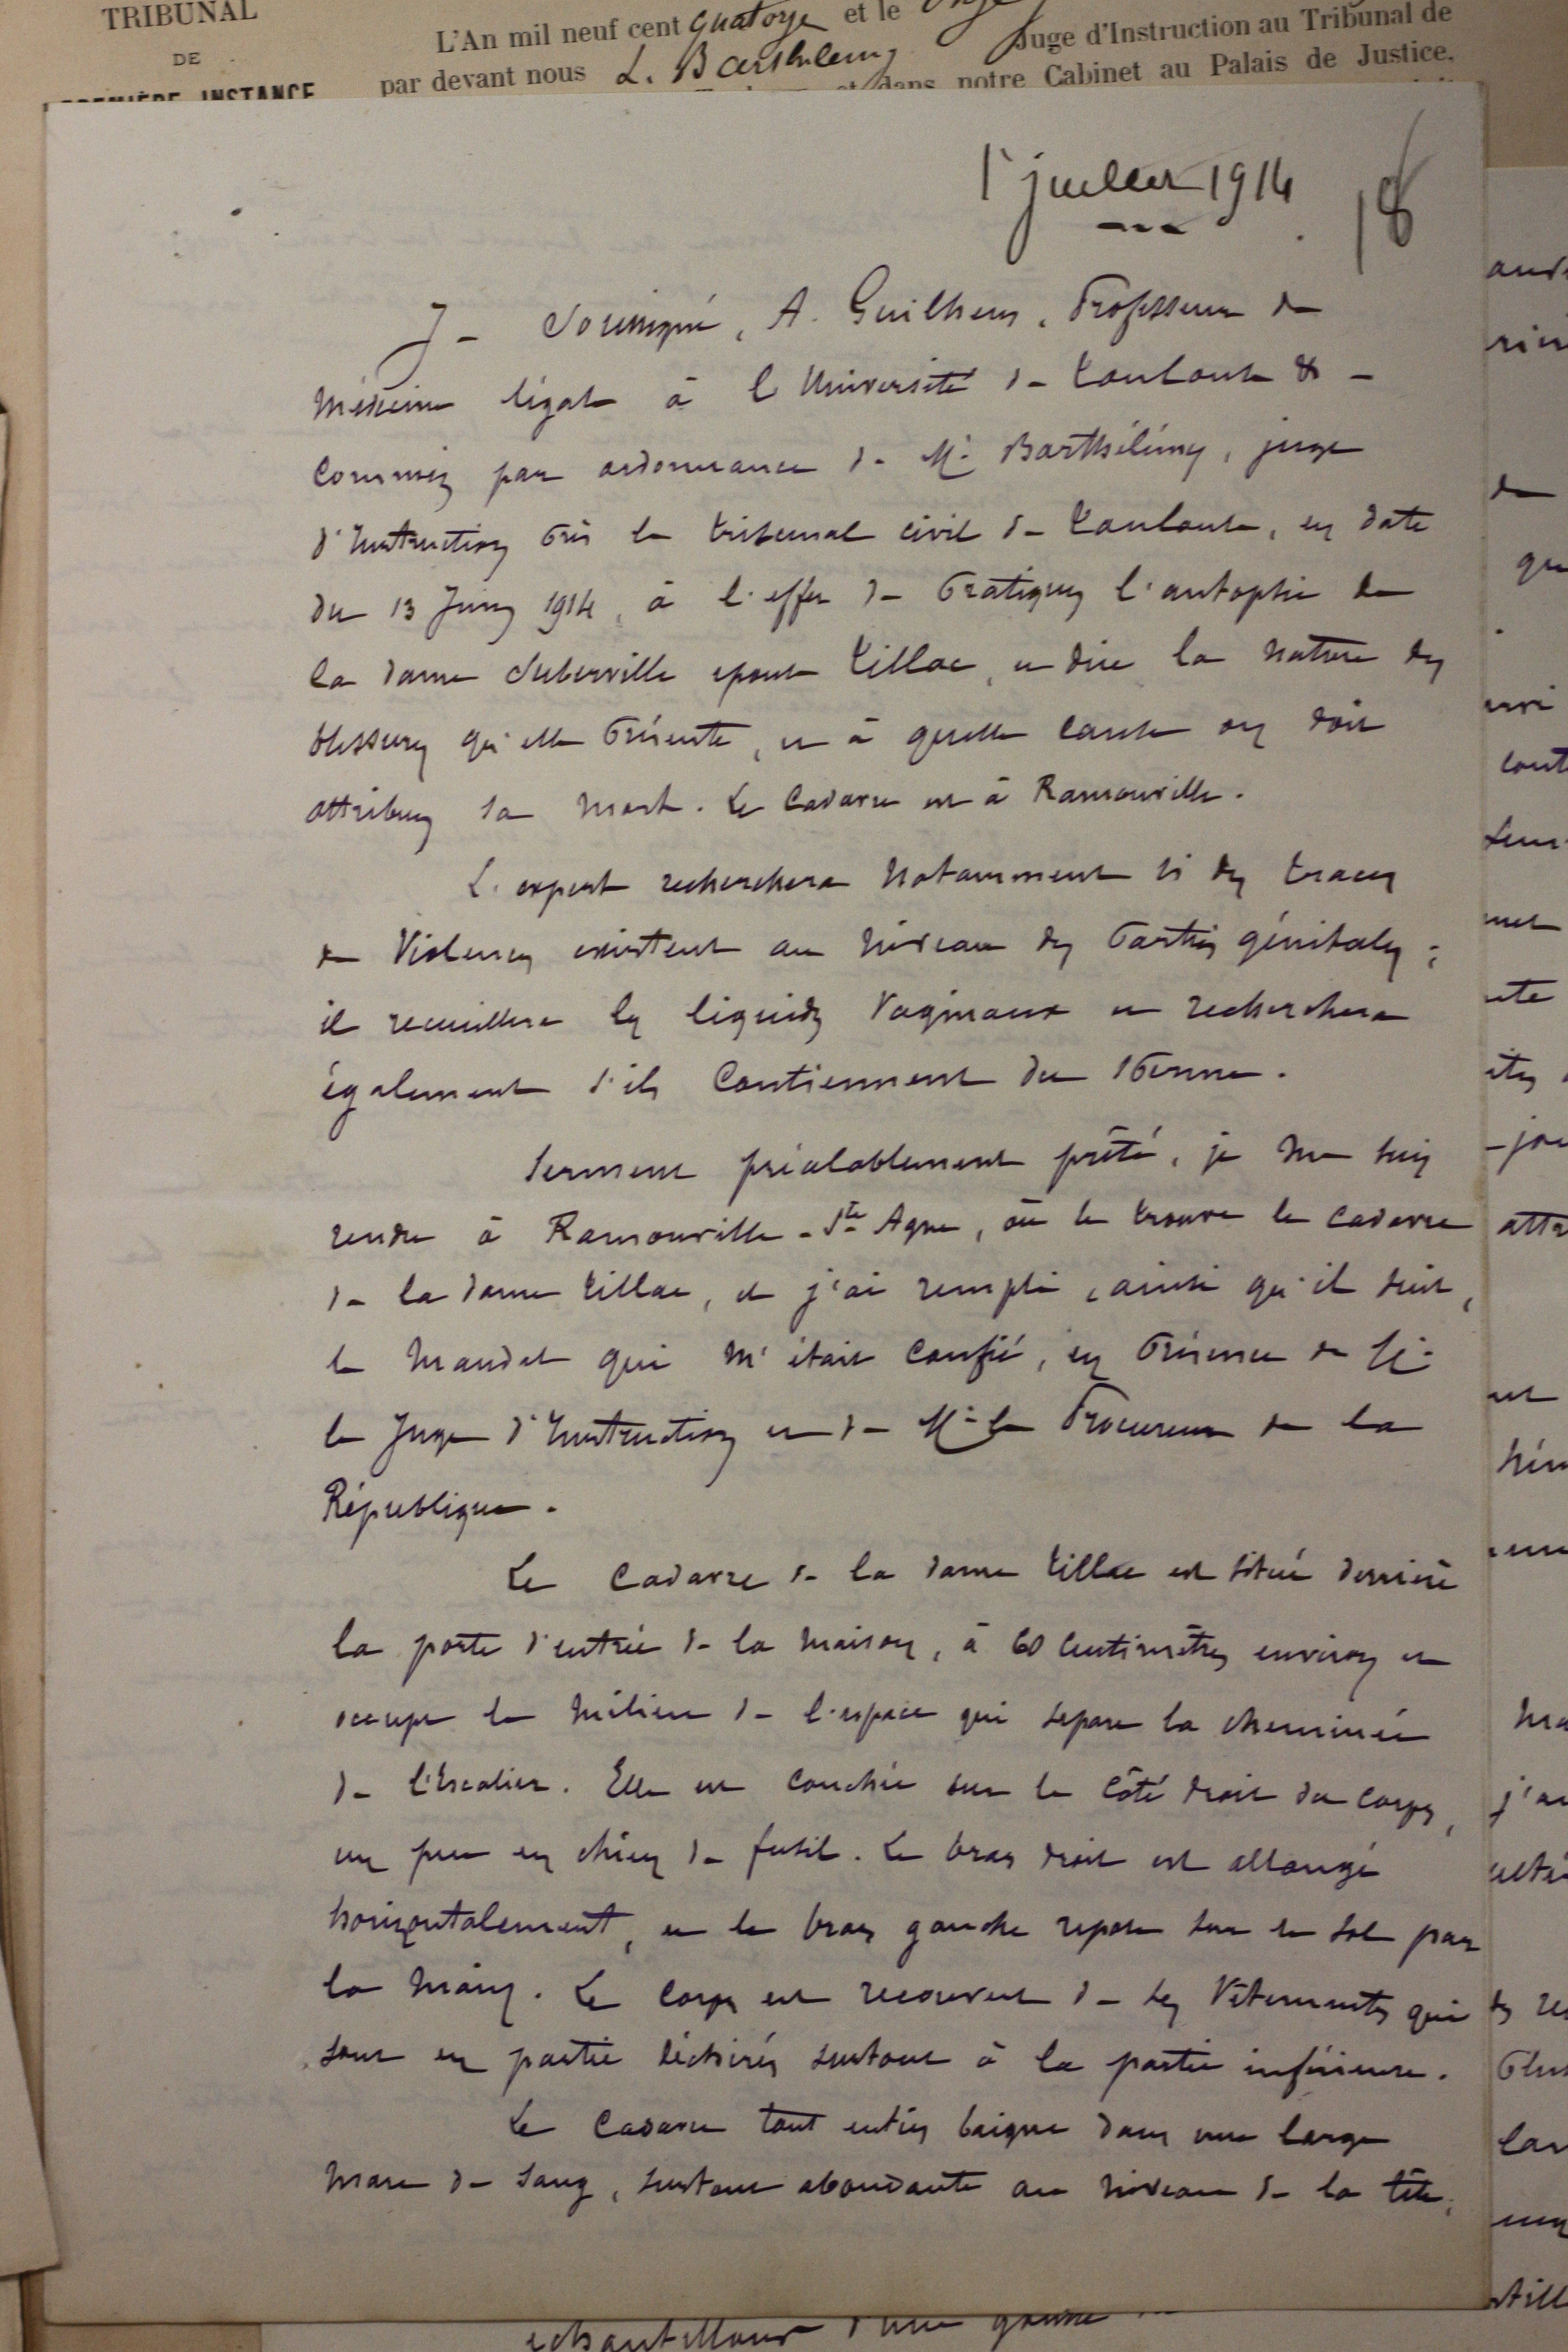 TRIBUNAL
DE
PREMIÈRE INSTANCE
L'An mil neuf cent quatorze et le onze
par devant nous L. Barthélemy Juge d'Instruction au Tribunal de
et dans notre Cabinet au Palais de Justice,
1er juillet 1914
18
Je soussigné, A. Guilhem, Professeur de
Médecine légale à l'Université de Toulouse &
Commis par ordonnance de Mr Barthélémy, juge
d'Instruction près le tribunal civil de Toulouse, en date
du 13 Juin 1914, à l'effet de pratiquer l'autopsie de
la dame Suberville epouse Tillac, en dire la nature des
blessures qu'elle présente, et à quelle cause on doit
attribuer sa mort. Le Cadavre est à Ramonville.
L'expert recherchera notamment si des traces
de Violences existent au niveau des parties génitales ;
il recueillera les liquides Vaginaux et recherchera
également s'ils Contiennent du sperme.
Serment préalablement prêté, je me suis
rendu à Ramonville-Ste Agne, où se trouve le cadavre
de la dame Tillac, et j'ai rempli, ainsi qu'il suit,
le Mandat qui m'était confié, en présence de Mr
le Juge d'Instruction et de Mr le Procureur de la
République.
Le Cadavre de la dame Tillac est situé derrière
la porte d'entrée de la maison, à 60 Centimètres environ et
occupe le milieu de l'espace qui separe la cheminée
de l'Escalier. Elle est couchée sur le côté droit du corps,
un peu en chien de fusil. Le bras droit est allongé
horizontalement, et le bras gauche repose sur le sol par
la main. Le corps est recouvert de ses Vêtements qui
sont en partie déchirés surtout à la partie inférieure.
Le Cadavre tout entier baigne dans une large
mare de sang, surtout abondante au niveau de la tête,